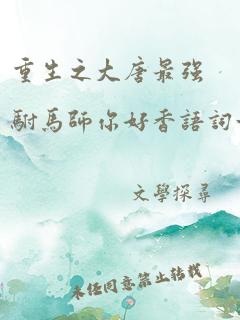 重生之大唐最强
駙馬師你好香語詞
文學探尋
未经同意禁止转载